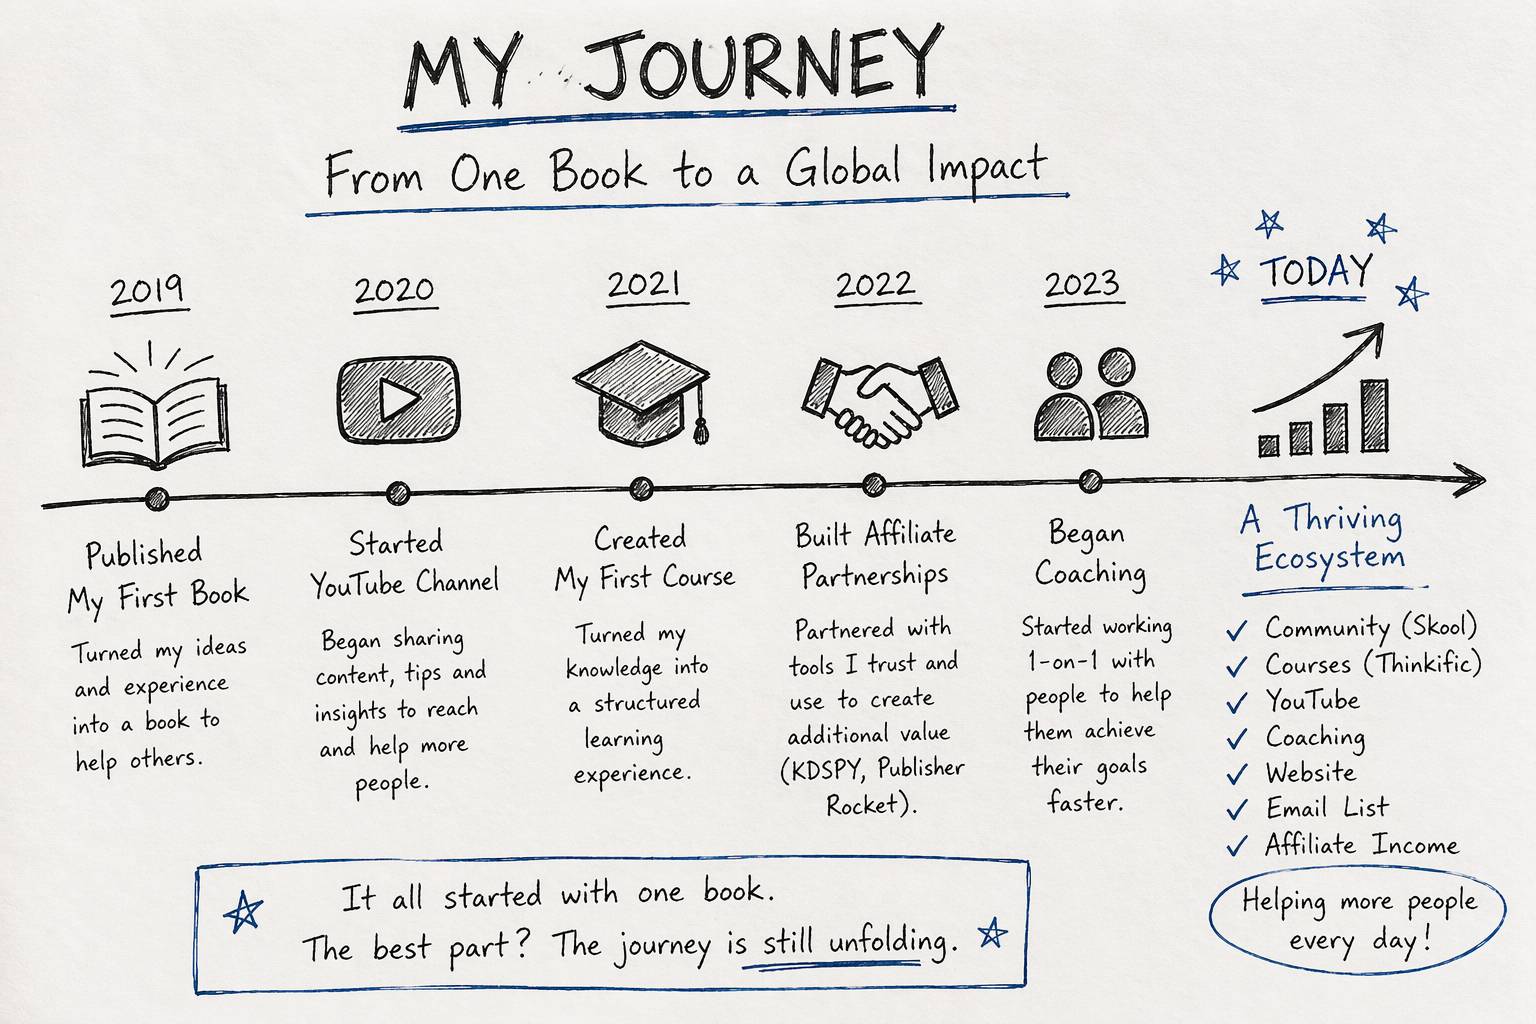 MY JOURNEY
From One Book to a Global Impact
2019
Published
My First Book
Turned my ideas
and experience
into a book to
help others.
2020
Started
YouTube Channel
Began sharing
content, tips and
insights to reach
and help more
people.
2021
Created
My First Course
Turned my
knowledge into
a structured
learning
experience.
2022
Built Affiliate
Partnerships
Partnered with
tools I trust and
use to create
additional value
(KDSPY, Publisher
Rocket).
2023
Began
Coaching
Started working
1-on-1 with
people to help
them achieve
their goals
faster.
TODAY
A Thriving
Ecosystem
✓ Community (Skool)
✓ Courses (Thinkific)
✓ YouTube
✓ Coaching
✓ Website
✓ Email List
✓ Affiliate Income
Helping more people
every day!
It all started with one book.
The best part? The journey is still unfolding.